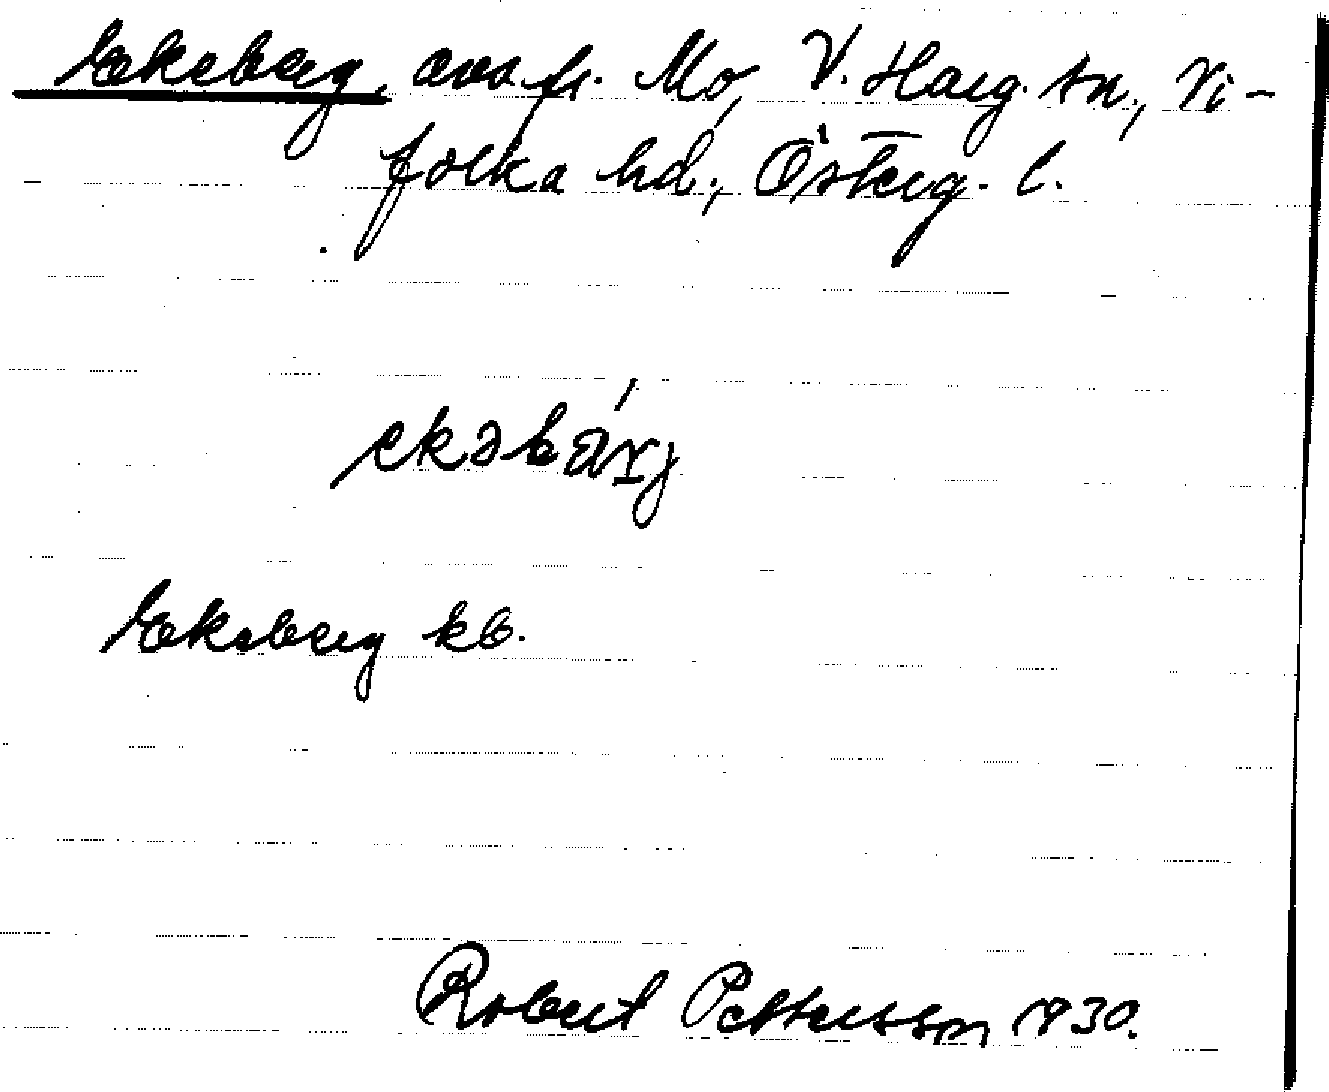 Ekeberg, avs. fr. Mo, V. Harg. sn, Vi-
folka hd., Österg. l.
ekəbárj
Ekeberg kb.
Robert Pettersson 1930.